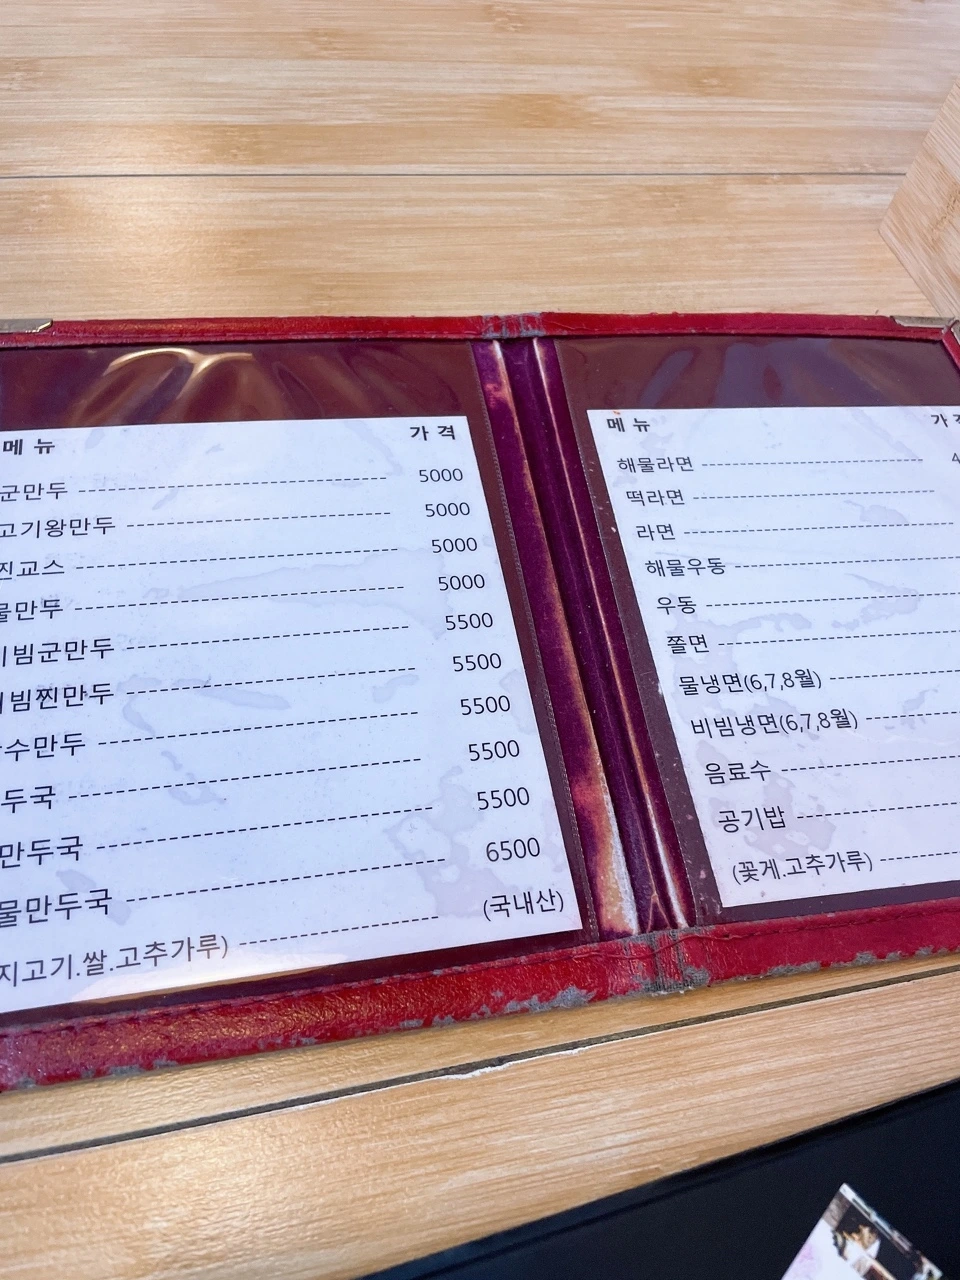 메뉴 가격
군만두 5000
고기왕만두 5000
교스 5000
만두 5000
빔군만두 5500
빔찐만두 5500
수만두 5500
두국 5500
만두국 5500
물만두국 6500
지고기.쌀.고추가루) (국내산)
메뉴 가격
해물라면 4
떡라면
라면
해물우동
우동
쫄면
물냉면(6,7,8월)
비빔냉면(6,7,8월)
음료수
공기밥
(꽃게.고추가루)